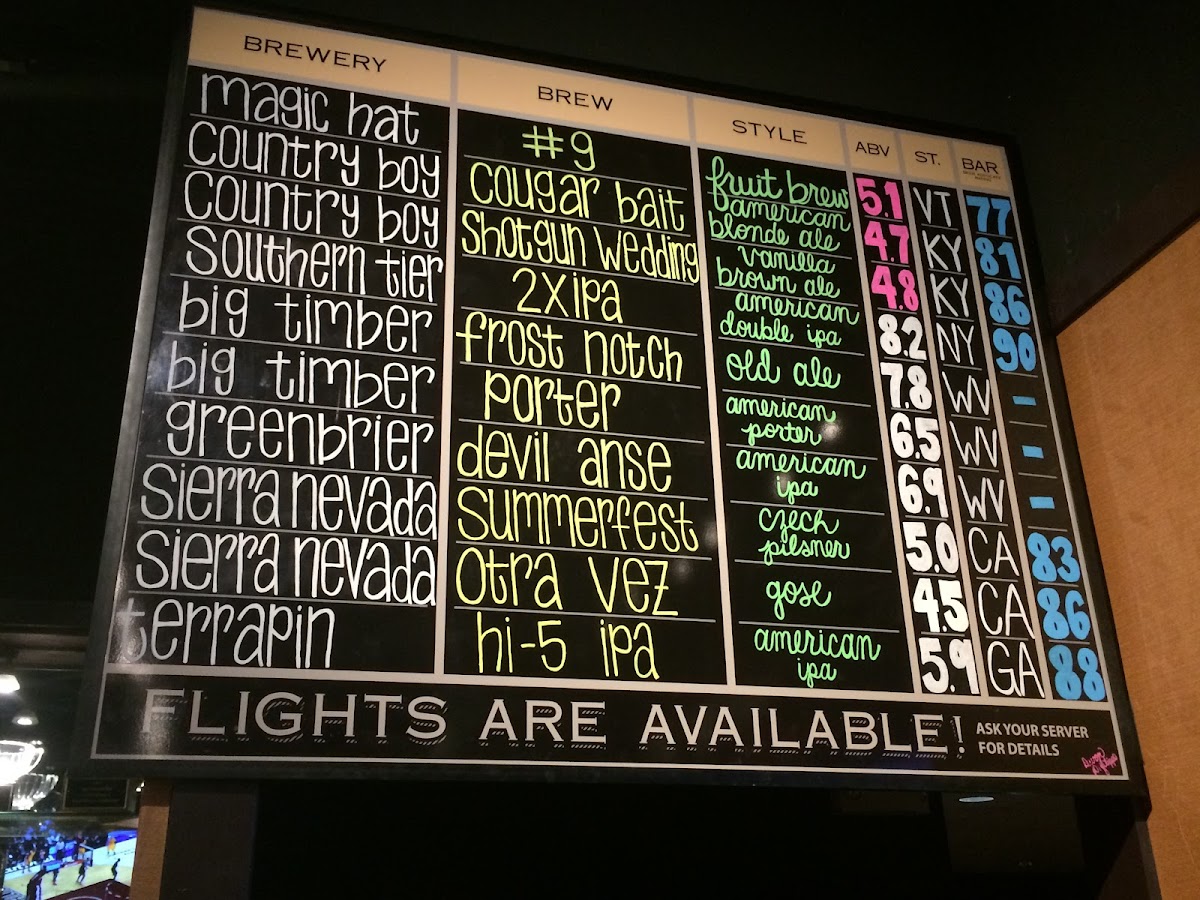 BREWERY BREW STYLE ABV ST. BAR
magic hat #9 fruit brew 5.1 VT 77
country boy cougar bait american blonde ale 4.7 KY 81
country boy shotgun wedding vanilla brown ale 4.8 KY 86
southern tier 2xipa american double ipa 8.2 NY 90
big timber frost notch old ale 7.8 WV -
big timber porter american porter 6.5 WV -
greenbrier devil anse american ipa 6.9 WV -
sierra nevada summerfest czech pilsner 5.0 CA 83
sierra nevada otra vez gose 4.5 CA 86
terrapin hi-5 ipa american ipa 5.9 GA 88
FLIGHTS ARE AVAILABLE! ASK YOUR SERVER
FOR DETAILS